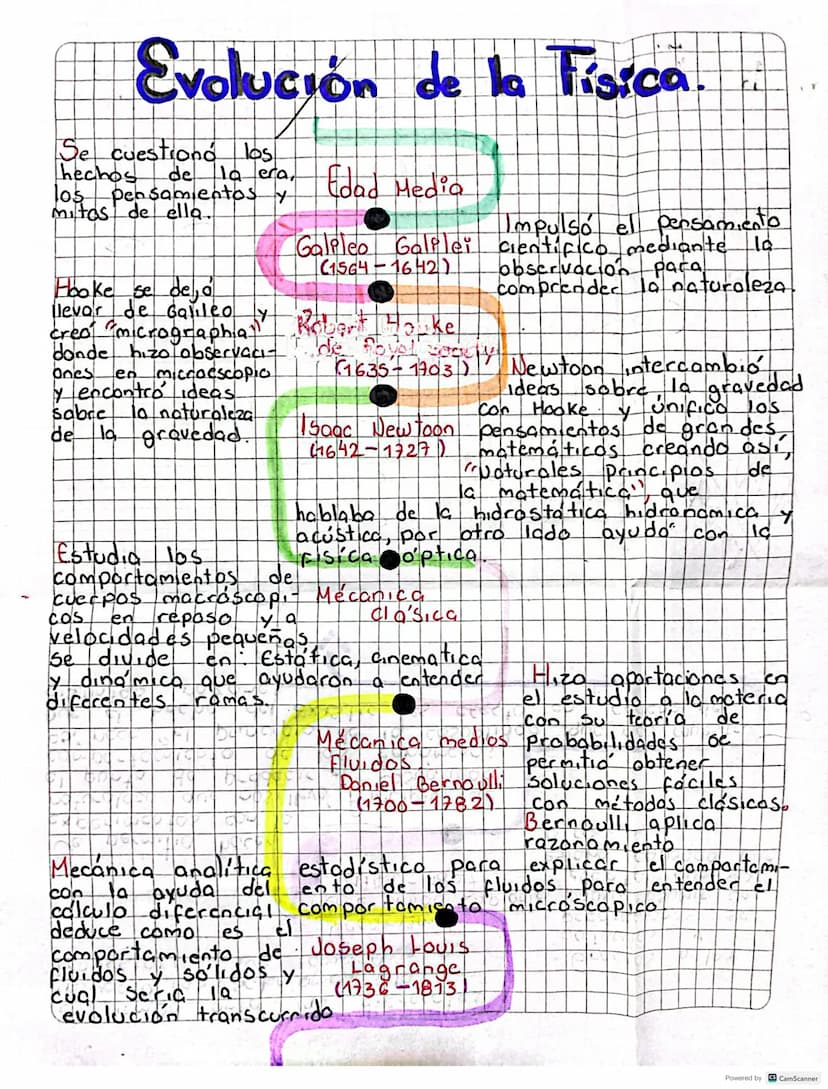 Evolución de la Física.
Se cuestionó los
hechos de la era,
los pensamientos y
mitos de ella.
Edad Media
Galpleo Galplei
(1564-1642)
Impulsó el pensamiento
científico mediante la
observación para
comprender la naturaleza.
Hooke se dejó
llevar de Galileo y
creó "micrographia"
donde hizo observaci-
ones en microescopio
y encontró ideas
sobre la naturaleza
de la gravedad.
Robert Hooke
de Royal society
(1635-1703)
Newtoon intercambió
ideas sobre la gravedad
con Hooke y únifico los
pensamientos de grandes
matemáticos creando así,
"Naturales Principios de
la matemática", que
hablaba de la hidrostática hidronomica y
acústica, por otro lado ayudó con la
física óptica.
Isaac Newtoon
(1642-1727)
Estudia los
comportamientos de
cuerpos macróscopi-
cos en reposo y a
velocidades pequeñas
se divide en: Estática, cinematica
y dinámica que ayudarón a entender
diferentes ramas.
Mécanica
Clásica
Mécanica medios
Fluidos
Daniel Bernoulli
(1700-1782)
Hizo aportaciones en
el estudio a la materia
con su teoría de
probabilidades se
permitió obtener
soluciones fáciles
con métodos clásicos.
Bernoulli aplica
razonamiento
estadístico para explicar el comportami-
ento de los fluidos para entender el
comportamiento micróscopico
Mecánica analítica
con la ayuda del
cálculo diferencial
deduce como es el
comportamiento de
fluidos y sólidos y
cual seria la
evolución transcurrido
Joseph Louis
Lagrange
(1736-1813)
Powered by CamScanner